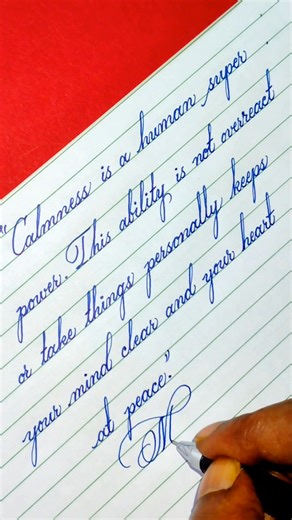 "Calmness is a human super
power. This ability is not overreact
or take things personally keeps
your mind clear and your heart
at peace."
M